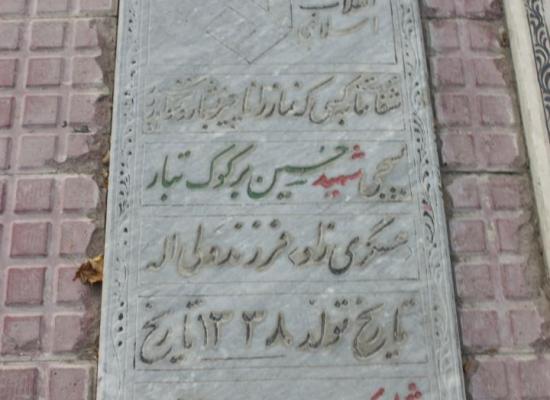 انقلاب
اسلامی
شفاعت ما کسی که نماز را ناچیز بشمارد
بسیجی شهید حسین برکوک تبار
عسگری زاد، فرزند ولی اله
تاریخ تولد ۱۳۳۸ تاریخ